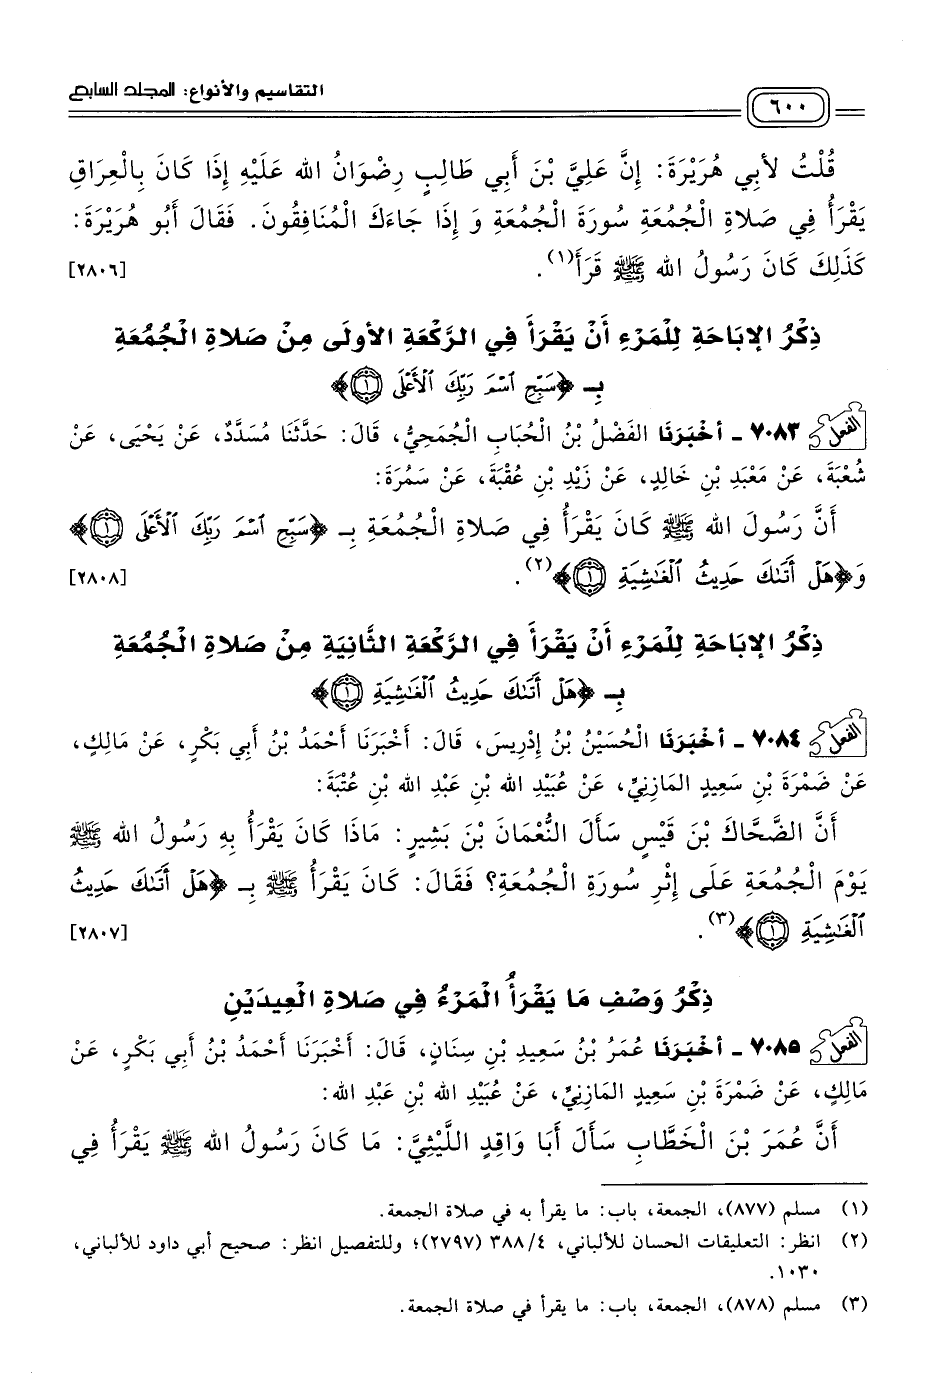 ٦٠٠
التقاسيم والأنواع: المجلد السابع
قُلْتُ لأَبِي هُرَيْرَةَ: إِنَّ عَلِيَّ بْنَ أَبِي طَالِبٍ رِضْوَانُ الله عَلَيْهِ إِذَا كَانَ بِالْعِرَاقِ
يَقْرَأُ فِي صَلَاةِ الْجُمُعَةِ سُورَةَ الْجُمُعَةِ وَ إِذَا جَاءَكَ الْمُنَافِقُونَ. فَقَالَ أَبُو هُرَيْرَةَ:
كَذَلِكَ كَانَ رَسُولُ الله ﷺ قَرَأَ(١). [٢٨٠٦]
ذِكْرُ الإِبَاحَةِ لِلْمَرْءِ أَنْ يَقْرَأَ فِي الرَّكْعَةِ الأُولَى مِنْ صَلَاةِ الْجُمُعَةِ
بِـ ﴿سَبِّحِ ٱسْمَ رَبِّكَ ٱلْأَعْلَى ۝١﴾
الفعل ٧٠٨٣ - أَخْبَرَنَا الفَضْلُ بْنُ الْحُبَابِ الْجُمَحِيُّ، قَالَ: حَدَّثَنَا مُسَدَّدٌ، عَنْ يَحْيَى، عَنْ
شُعْبَةَ، عَنْ مَعْبَدِ بْنِ خَالِدٍ، عَنْ زَيْدِ بْنِ عُقْبَةَ، عَنْ سَمُرَةَ:
أَنَّ رَسُولَ الله ﷺ كَانَ يَقْرَأُ فِي صَلَاةِ الْجُمُعَةِ بِـ ﴿سَبِّحِ ٱسْمَ رَبِّكَ ٱلْأَعْلَى ۝١﴾
وَ﴿هَلْ أَتَىٰكَ حَدِيثُ ٱلْغَٰشِيَةِ ۝١﴾(٢). [٢٨٠٨]
ذِكْرُ الإِبَاحَةِ لِلْمَرْءِ أَنْ يَقْرَأَ فِي الرَّكْعَةِ الثَّانِيَةِ مِنْ صَلَاةِ الْجُمُعَةِ
بِـ ﴿هَلْ أَتَىٰكَ حَدِيثُ ٱلْغَٰشِيَةِ ۝١﴾
الفعل ٧٠٨٤ - أَخْبَرَنَا الْحُسَيْنُ بْنُ إِدْرِيسَ، قَالَ: أَخْبَرَنَا أَحْمَدُ بْنُ أَبِي بَكْرٍ، عَنْ مَالِكٍ،
عَنْ ضَمْرَةَ بْنِ سَعِيدٍ المَازِنِيِّ، عَنْ عُبَيْدِ الله بْنِ عَبْدِ الله بْنِ عُتْبَةَ:
أَنَّ الضَّحَّاكَ بْنَ قَيْسٍ سَأَلَ النُّعْمَانَ بْنَ بَشِيرٍ: مَاذَا كَانَ يَقْرَأُ بِهِ رَسُولُ الله ﷺ
يَوْمَ الْجُمُعَةِ عَلَى إِثْرِ سُورَةِ الْجُمُعَةِ؟ فَقَالَ: كَانَ يَقْرَأُ ﷺ بِـ ﴿هَلْ أَتَىٰكَ حَدِيثُ
ٱلْغَٰشِيَةِ ۝١﴾(٣). [٢٨٠٧]
ذِكْرُ وَصْفِ مَا يَقْرَأُ الْمَرْءُ فِي صَلَاةِ الْعِيدَيْنِ
الفعل ٧٠٨٥ - أَخْبَرَنَا عُمَرُ بْنُ سَعِيدِ بْنِ سِنَانٍ، قَالَ: أَخْبَرَنَا أَحْمَدُ بْنُ أَبِي بَكْرٍ، عَنْ
مَالِكٍ، عَنْ ضَمْرَةَ بْنِ سَعِيدٍ المَازِنِيِّ، عَنْ عُبَيْدِ الله بْنِ عَبْدِ الله:
أَنَّ عُمَرَ بْنَ الْخَطَّابِ سَأَلَ أَبَا وَاقِدٍ اللَّيْثِيَّ: مَا كَانَ رَسُولُ الله ﷺ يَقْرَأُ فِي
(١) مسلم (٨٧٧)، الجمعة، باب: ما يقرأ به في صلاة الجمعة.
(٢) انظر: التعليقات الحسان للألباني، ٣٨٨/٤ (٢٧٩٧)؛ وللتفصيل انظر: صحيح أبي داود للألباني،
١٠٣٠.
(٣) مسلم (٨٧٨)، الجمعة، باب: ما يقرأ في صلاة الجمعة.